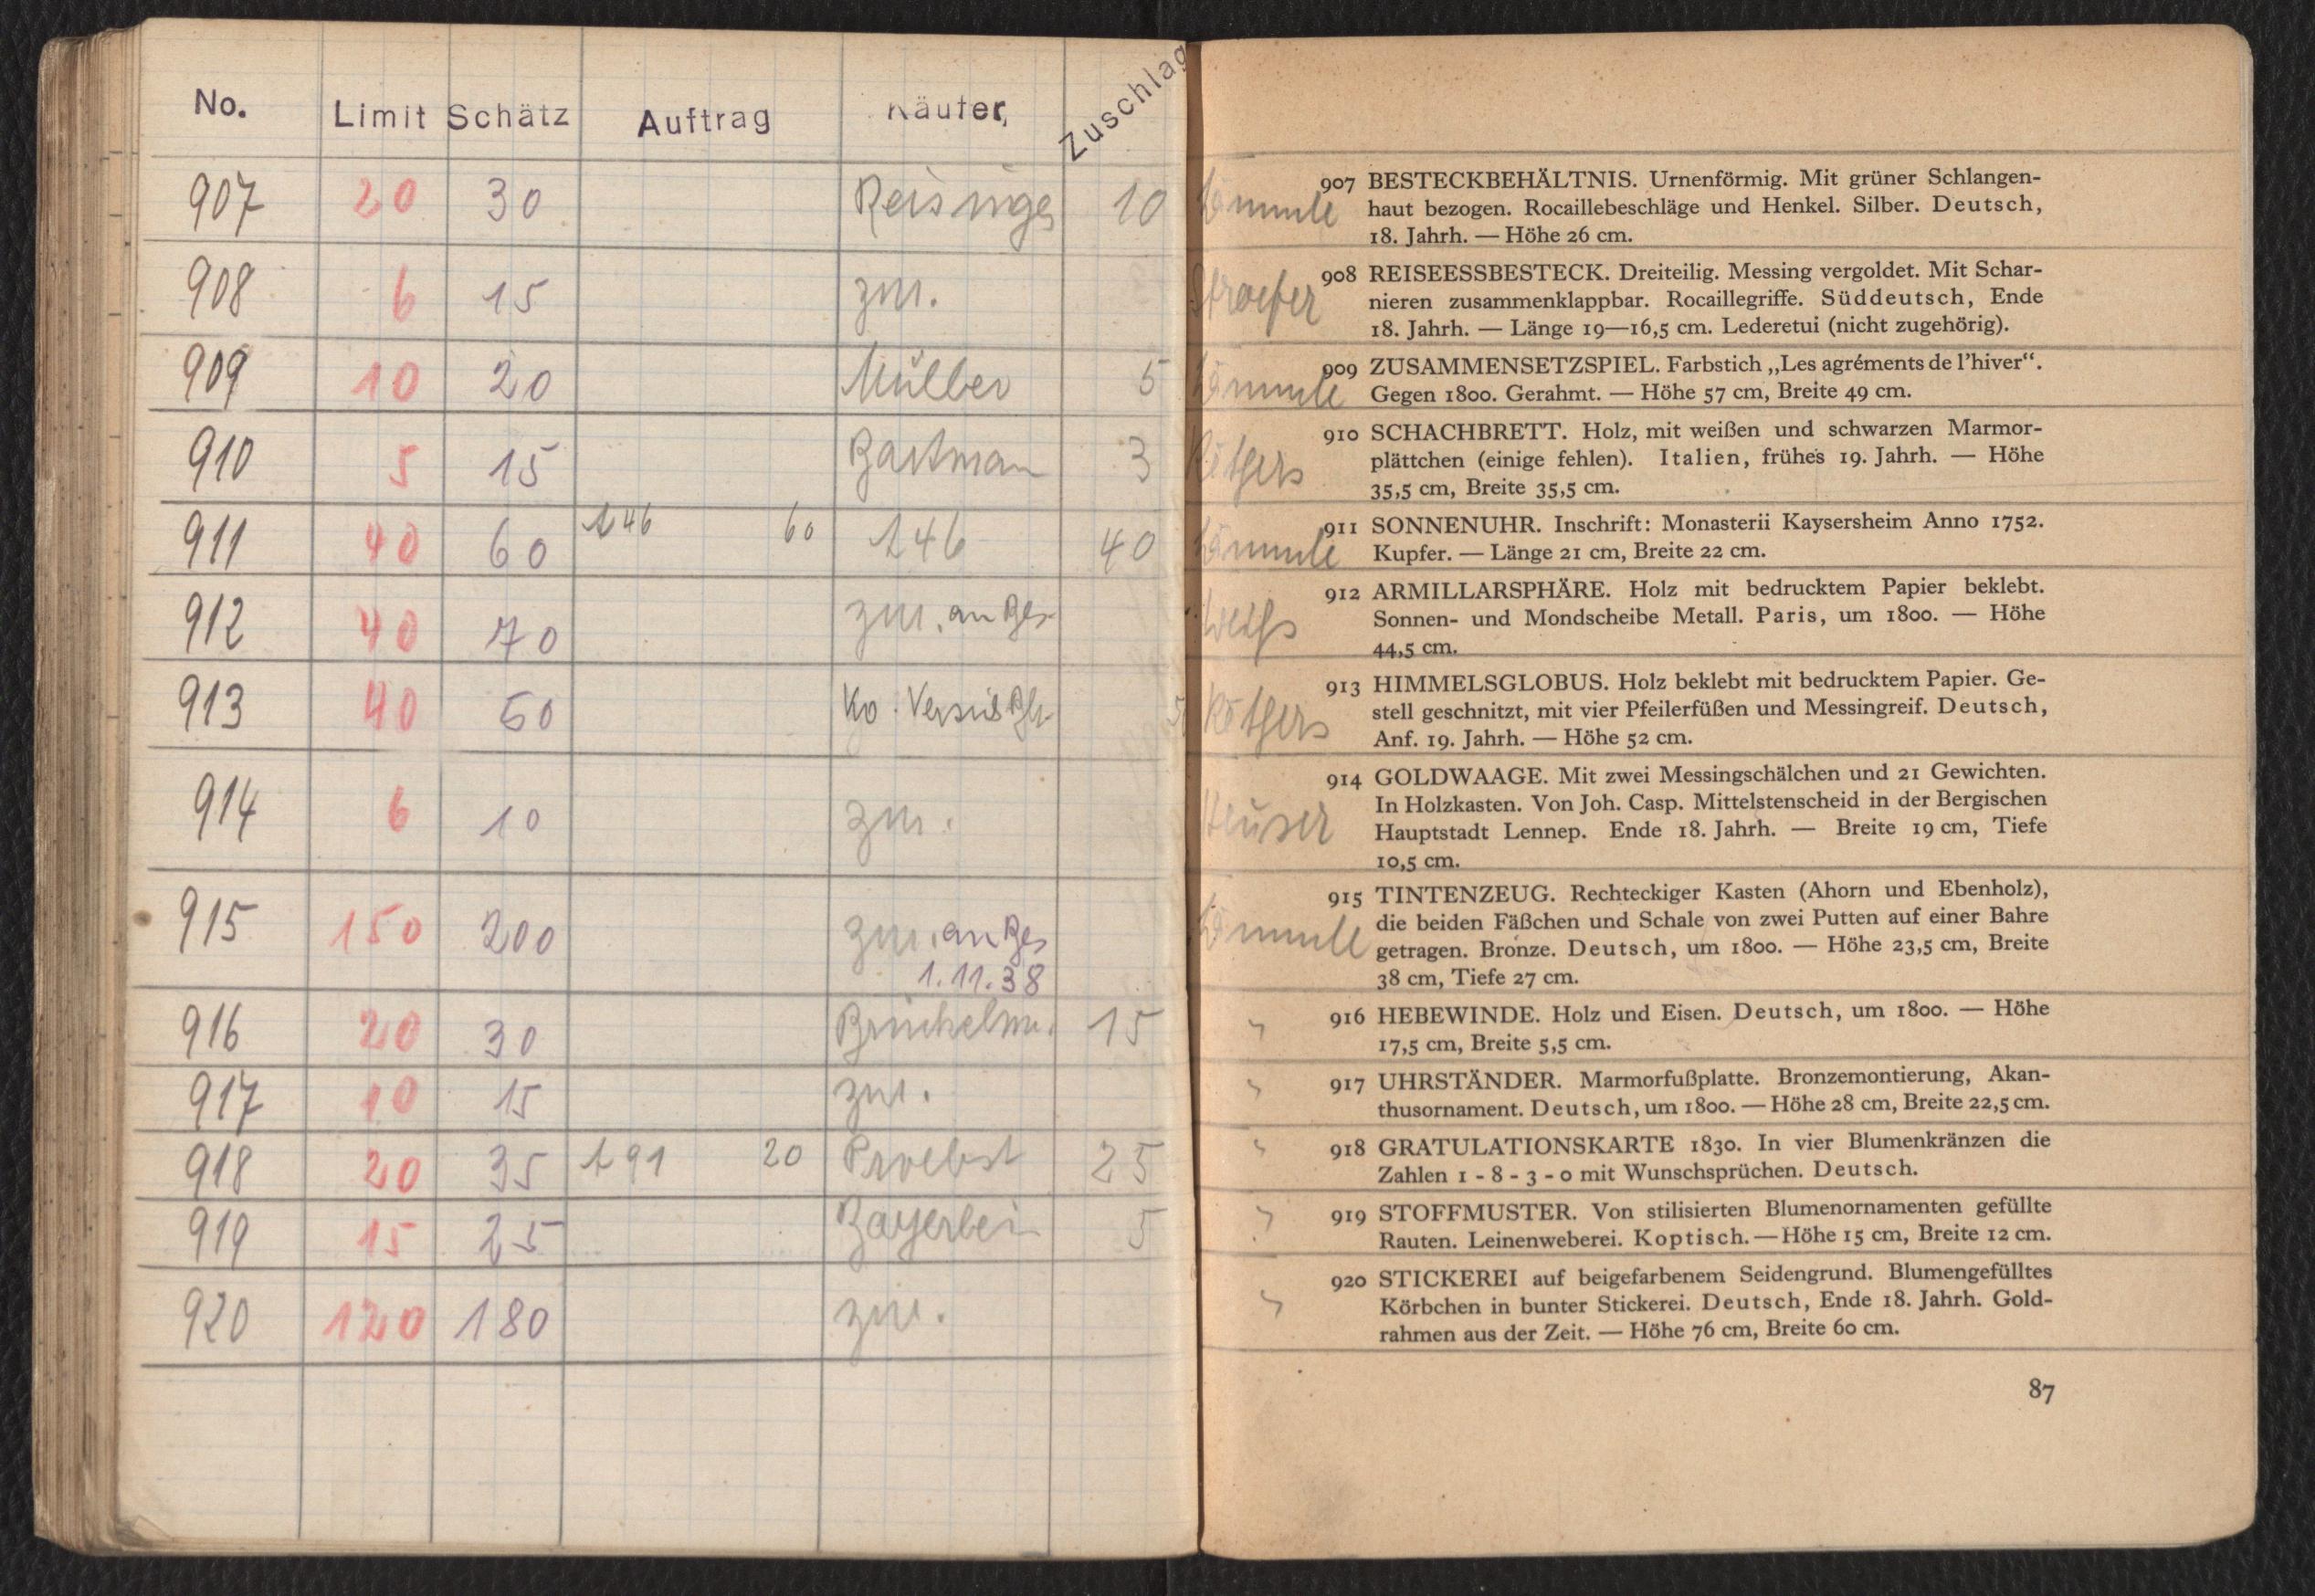 No. Limit Schätz Auftrag Käufer, Zuschlag
907 20 30 10
908 6 15 zur.
909 10 20 5
910 5 15 3
911 40 60 246 60 246 40
912 40 70 zur.
913 40 60
914 6 10 zur.
915 150 200 zur.
1.11.38
916 20 30 15
917 10 15 zur.
918 20 35 291 20 Proebst 25
919 15 25 5
920 120 180 zur.
907 BESTECKBEHÄLTNIS. Urnenförmig. Mit grüner Schlangen-
haut bezogen. Rocaillebeschläge und Henkel. Silber. Deutsch,
18. Jahrh. — Höhe 26 cm.
908 REISEESSBESTECK. Dreiteilig. Messing vergoldet. Mit Schar-
nieren zusammenklappbar. Rocaillegriffe. Süddeutsch, Ende
18. Jahrh. — Länge 19—16,5 cm. Lederetui (nicht zugehörig).
909 ZUSAMMENSETZSPIEL. Farbstich „Les agréments de l'hiver“.
Gegen 1800. Gerahmt. — Höhe 57 cm, Breite 49 cm.
910 SCHACHBRETT. Holz, mit weißen und schwarzen Marmor-
plättchen (einige fehlen). Italien, frühes 19. Jahrh. — Höhe
35,5 cm, Breite 35,5 cm.
911 SONNENUHR. Inschrift: Monasterii Kaysersheim Anno 1752.
Kupfer. — Länge 21 cm, Breite 22 cm.
912 ARMILLARSPHÄRE. Holz mit bedrucktem Papier beklebt.
Sonnen- und Mondscheibe Metall. Paris, um 1800. — Höhe
44,5 cm.
913 HIMMELSGLOBUS. Holz beklebt mit bedrucktem Papier. Ge-
stell geschnitzt, mit vier Pfeilerfüßen und Messingreif. Deutsch,
Anf. 19. Jahrh. — Höhe 52 cm.
914 GOLDWAAGE. Mit zwei Messingschälchen und 21 Gewichten.
In Holzkasten. Von Joh. Casp. Mittelstenscheid in der Bergischen
Hauptstadt Lennep. Ende 18. Jahrh. — Breite 19 cm, Tiefe
10,5 cm.
915 TINTENZEUG. Rechteckiger Kasten (Ahorn und Ebenholz),
die beiden Fäßchen und Schale von zwei Putten auf einer Bahre
getragen. Bronze. Deutsch, um 1800. — Höhe 23,5 cm, Breite
38 cm, Tiefe 27 cm.
916 HEBEWINDE. Holz und Eisen. Deutsch, um 1800. — Höhe
17,5 cm, Breite 5,5 cm.
917 UHRSTÄNDER. Marmorfußplatte. Bronzemontierung, Akan-
thusornament. Deutsch, um 1800. — Höhe 28 cm, Breite 22,5 cm.
918 GRATULATIONSKARTE 1830. In vier Blumenkränzen die
Zahlen 1 - 8 - 3 - 0 mit Wunschsprüchen. Deutsch.
919 STOFFMUSTER. Von stilisierten Blumenornamenten gefüllte
Rauten. Leinenweberei. Koptisch. — Höhe 15 cm, Breite 12 cm.
920 STICKEREI auf beigefarbenem Seidengrund. Blumengefülltes
Körbchen in bunter Stickerei. Deutsch, Ende 18. Jahrh. Gold-
rahmen aus der Zeit. — Höhe 76 cm, Breite 60 cm.
87